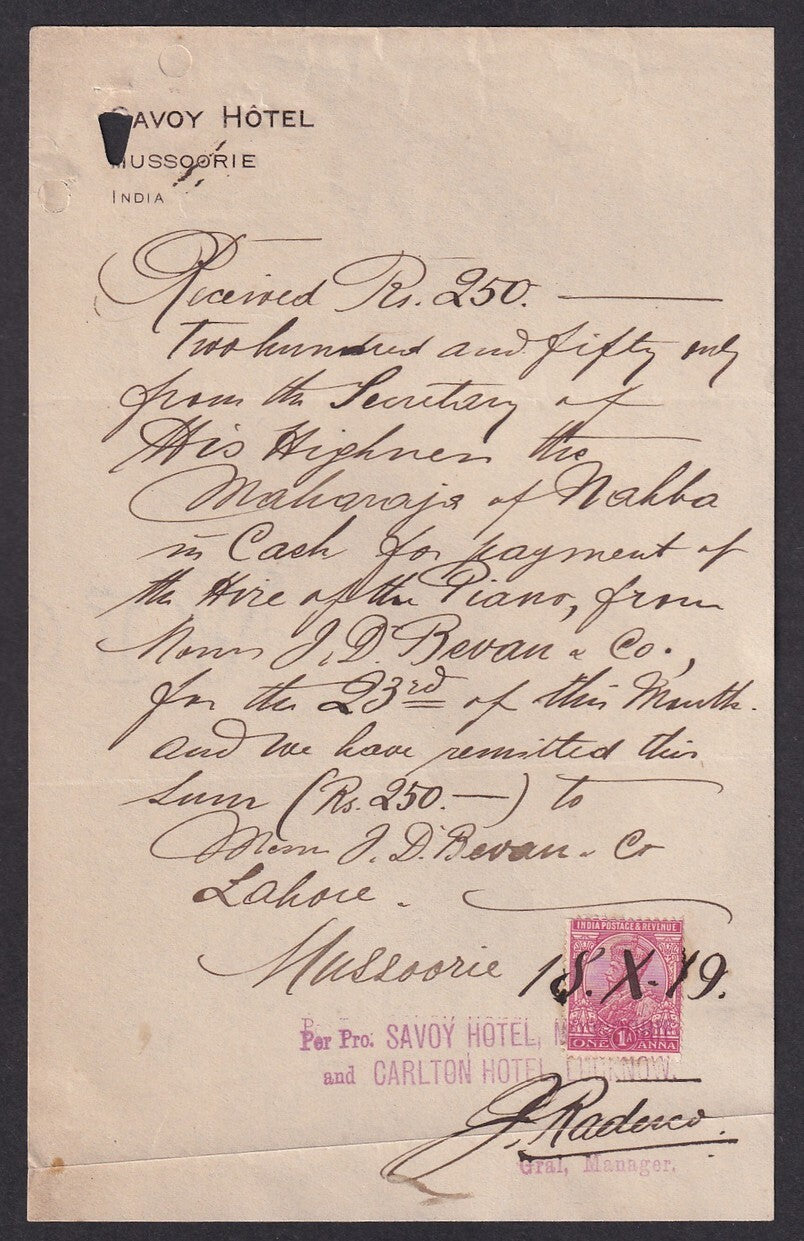 SAVOY HÔTEL
MUSSOORIE
INDIA
Received Rs. 250. —
Two hundred and fifty only
from the Secretary of
His Highness the
Maharaja of Nahba
in Cash for payment of
the Hire of the Piano, from
Messrs J. D. Bevan & Co.,
for the 23rd of this Month.
and we have remitted this
sum (Rs. 250. —) to
Messrs J. D. Bevan & Co
Lahore.
Mussoorie 18. X. 19.
INDIA POSTAGE & REVENUE
1A
ONE ANNA
Per Pro. SAVOY HOTEL,
and CARLTON HOTEL, LUCKNOW.
Gral, Manager.